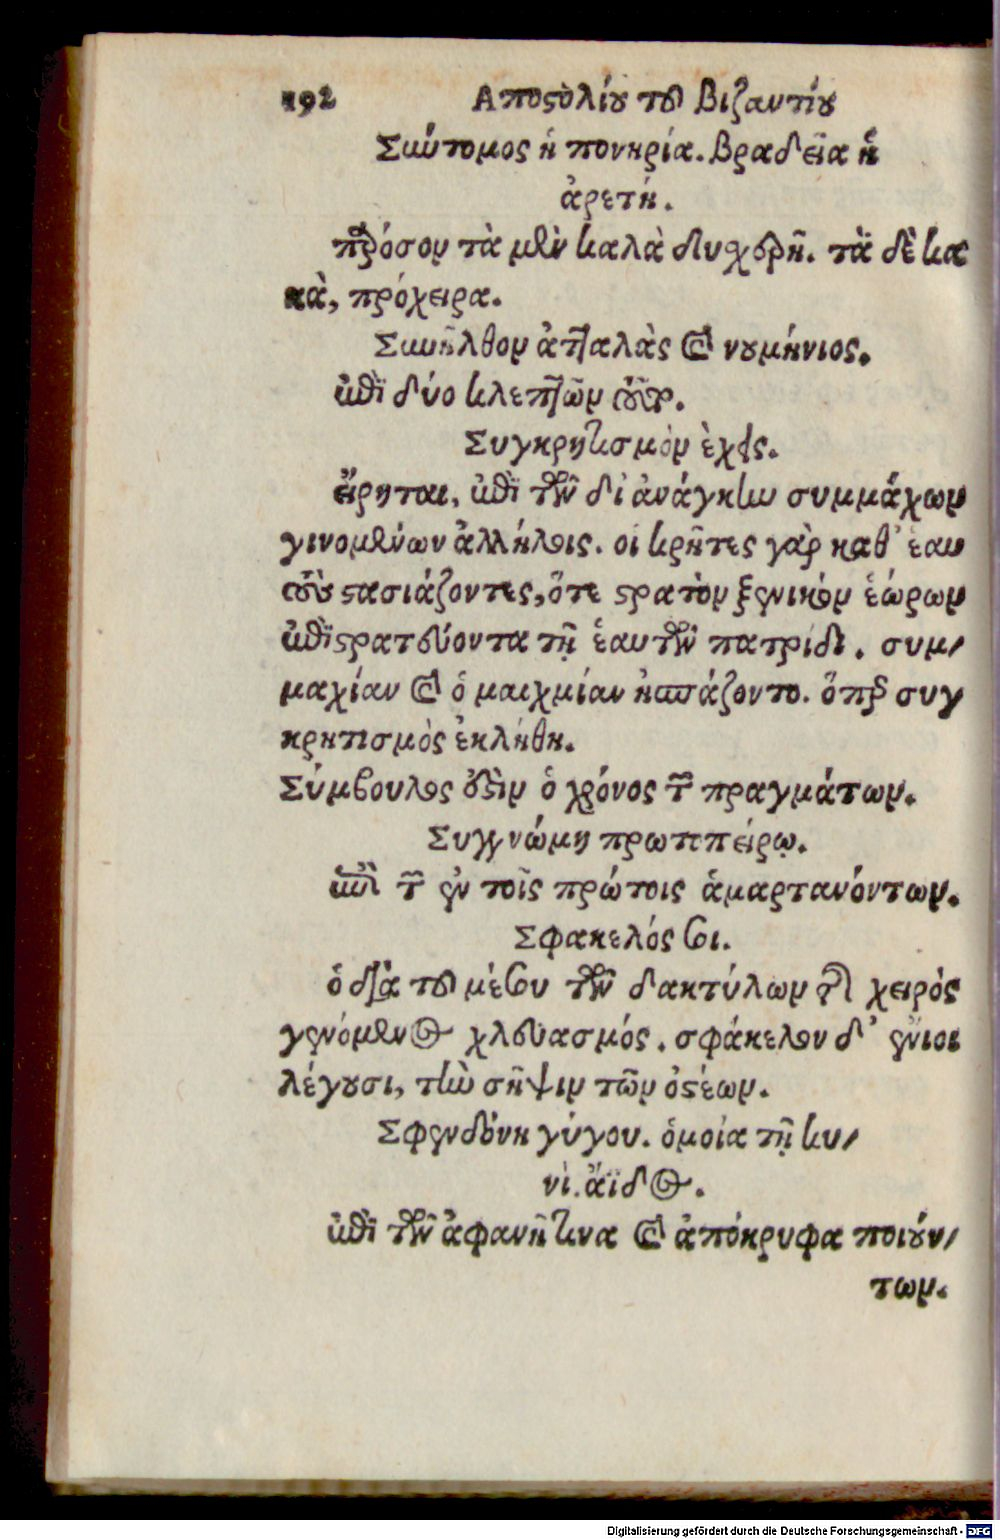 192 Αποστολίου τοῦ Βιζαντίου
Σύντομος ἡ πονηρία. βραδεῖα ἡ
ἀρετή.
παρόσον τὰ μὲν καλὰ δυσχερῆ. τὰ δὲ κα
κὰ, πρόχειρα.
Συνῆλθον ἀτταλὰς καὶ νουμήνιος.
ἐπὶ δύο κλεπτῶν
Συγκρητισμὸν ἔχεις.
εἴρηται, ἐπὶ τῶν δι' ἀνάγκην συμμάχων
γινομένων ἀλλήλοις. οἱ κρῆτες γὰρ καθ' ἑαυ
τοὺς στασιάζοντες, ὅτε στρατὸν ξενικὸν ἑώρων
ἐπιστρατεύοντα τῇ ἑαυτῶν πατρίδι. συμ/
μαχίαν καὶ ὁμαιχμίαν ἠσπάζοντο. ὅπερ συγ
κρητισμὸς ἐκλήθη.
Σύμβουλος οὐδεὶς ὁ χρόνος τῶν πραγμάτων.
Συγγνώμη πρωτοπείρῳ.
ἐπὶ τῶν ἐν τοῖς πρώτοις ἁμαρτανόντων.
Σφακελός σοι.
ὁ διὰ τοῦ μέσου τῶν δακτύλων τῆς χειρὸς
γενόμενος χλευασμός. σφάκελον δ' ἔνιοι
λέγουσι, τὴν σῆψιν τῶν ὀστέων.
Σφενδόνη γύγου. ὁμοία τῇ κυ/
νὶ. ἄϊδος.
ἐπὶ τῶν ἀφανῆ τινα καὶ ἀπόκρυφα ποιούν/
των.
Digitalisierung gefördert durch die Deutsche Forschungsgemeinschaft - DFG